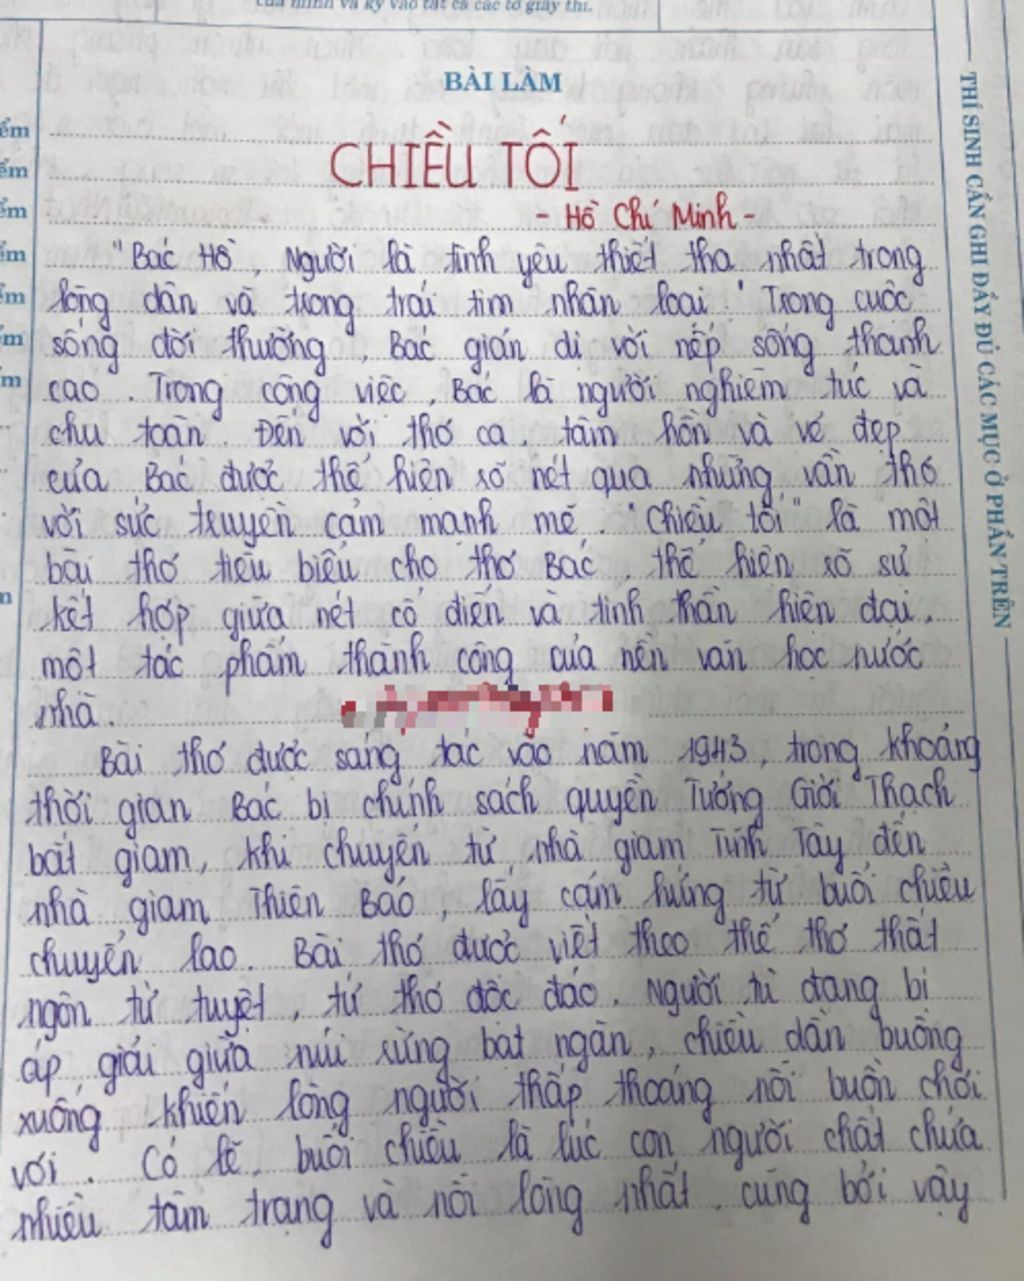 của mình và ký vào tất cả các tờ giấy thi.
BÀI LÀM
CHIỀU TỐI
- Hồ Chí Minh -
"Bác Hồ, Người là tình yêu thiết tha nhất trong
lòng dân và trong trái tim nhân loại". Trong cuộc
sống đời thường, Bác giản dị với nếp sống thanh
cao. Trong công việc, Bác là người nghiêm túc và
chu toàn. Đến với thơ ca, tâm hồn và vẻ đẹp
của Bác được thể hiện rõ nét qua những vần thơ
với sức truyền cảm mạnh mẽ. "Chiều tối" là một
bài thơ tiêu biểu cho thơ Bác, thể hiện rõ sự
kết hợp giữa nét cổ điển và tinh thần hiện đại,
một tác phẩm thành công của nền văn học nước
nhà.
Bài thơ được sáng tác vào năm 1943, trong khoảng
thời gian Bác bị chính sách quyền Tưởng Giới Thạch
bắt giam, khi chuyển từ nhà giam Tĩnh Tây đến
nhà giam Thiên Bảo, lấy cảm hứng từ buổi chiều
chuyển lao. Bài thơ được viết theo thể thơ thất
ngôn tứ tuyệt, tứ thơ độc đáo. Người tù đang bị
áp giải giữa núi rừng bạt ngàn, chiều dần buông
xuống khiến lòng người thấp thoáng nỗi buồn chơi
vơi. Có lẽ, buổi chiều là lúc con người chất chứa
nhiều tâm trạng và nỗi lòng nhất, cũng bởi vậy
THÍ SINH CẦN GHI ĐẦY ĐỦ CÁC MỤC Ở PHẦN TRÊN